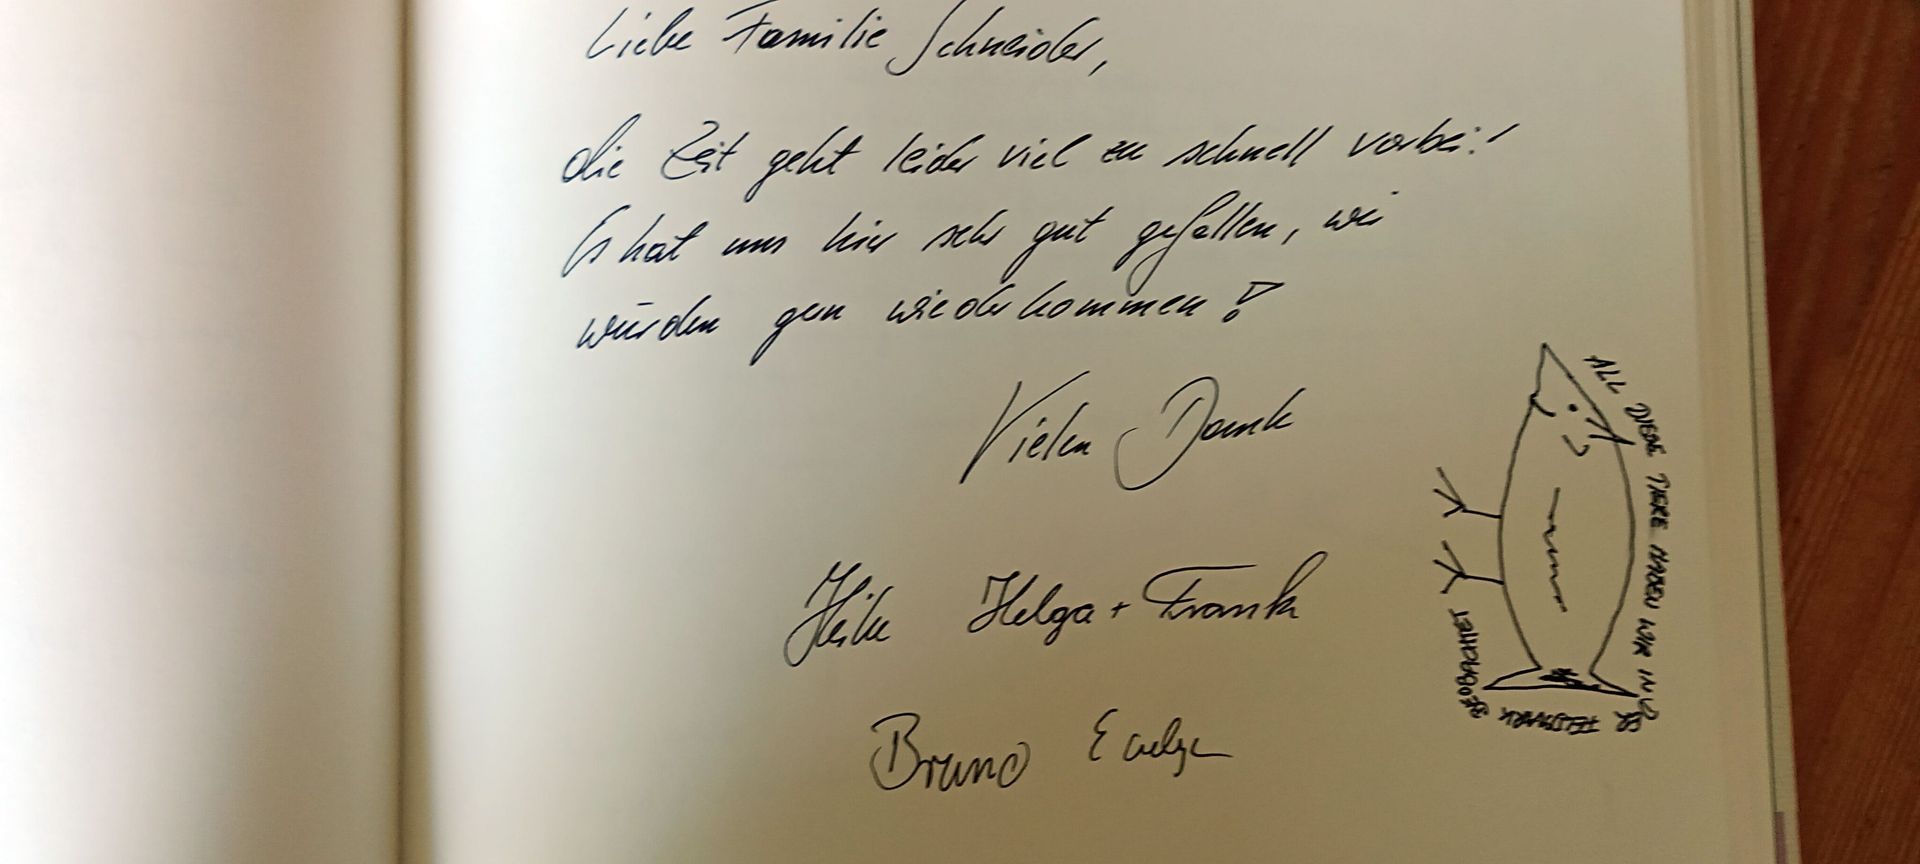 Liebe Familie Schneider,
die Zeit geht leider viel zu schnell vorbei!
Es hat uns hier sehr gut gefallen, wir
würden gern wiederkommen!
Vielen Dank
Heike Helga + Frank
Bruno
ALL DIESE TIERE HABEN WIR IN DER FELDMARK BEOBACHTET